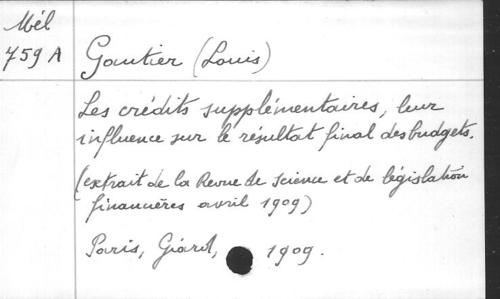 Mél
759 A
Gautier (Louis)
Les crédits supplémentaires, leur
influence sur le résultat final des budgets.
(extrait de la Revue de science et de législation
financières avril 1909)
Paris, Giard, 1909.